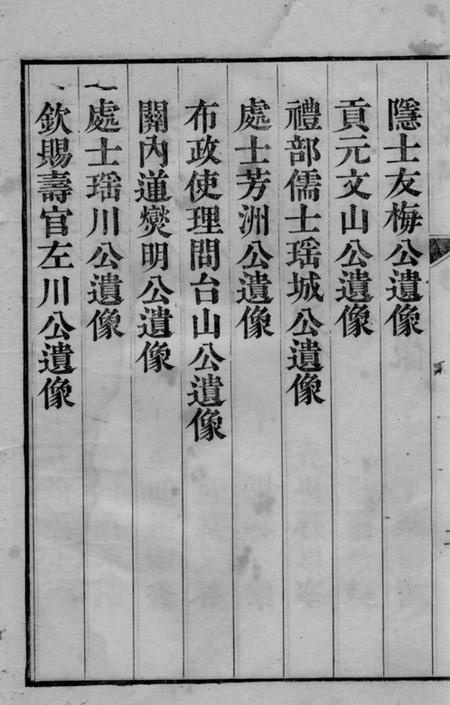 隱士友梅公遺像
貢元文山公遺像
禮部儒士瑶城公遺像
處士芳洲公遺像
布政使理問台山公遺像
關內道爕明公遺像
處士瑶川公遺像
欽賜壽官左川公遺像